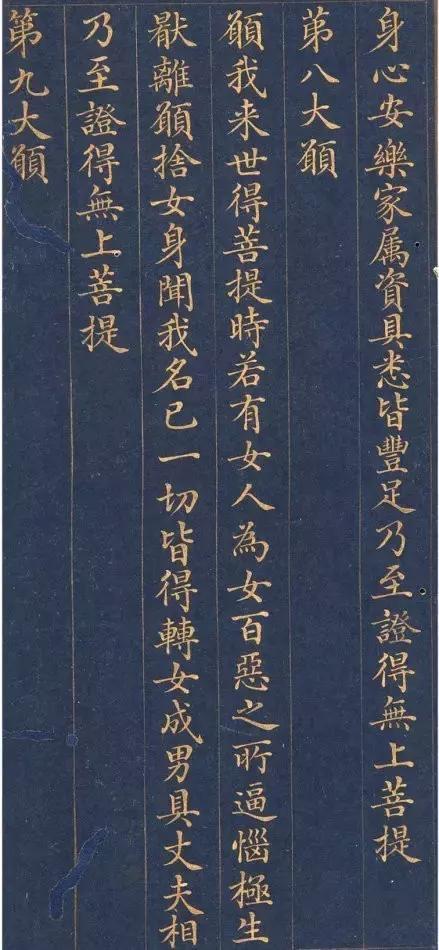 身心安樂家属資具悉皆豐足乃至證得無上菩提
苐八大願
願我来世得菩提時若有女人為女百惡之所逼惱極生
猒離願捨女身聞我名已一切皆得轉女成男具丈夫相
乃至證得無上菩提
第九大願